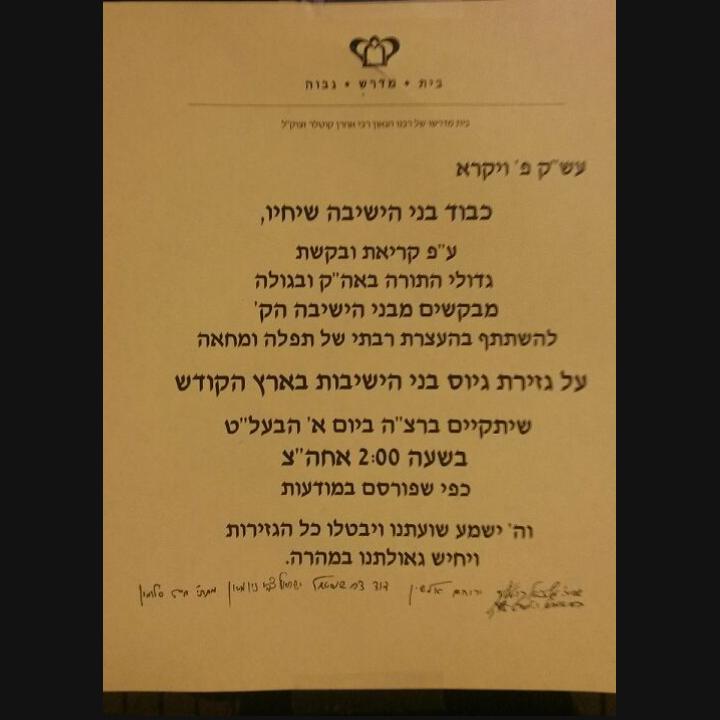 בית • מדרש • גבוה
בית מדרשו של רבנו הגאון רבי אהרן קוטלר זצוק"ל
עש"ק פ' ויקרא
כבוד בני הישיבה שיחיו,
ע"פ קריאת ובקשת
גדולי התורה באה"ק ובגולה
מבקשים מבני הישיבה הק'
להשתתף בהעצרת רבתי של תפלה ומחאה
על גזירת גיוס בני הישיבות בארץ הקודש
שיתקיים ברצ"ה ביום א' הבעל"ט
בשעה 2:00 אחה"צ
כפי שפורסם במודעות
וה' ישמע שועתנו ויבטלו כל הגזירות
ויחיש גאולתנו במהרה.
ירוחם אלשין דוד צבי שוסטאל ישראל צבי ניומאן מתתי' חיים סלומון